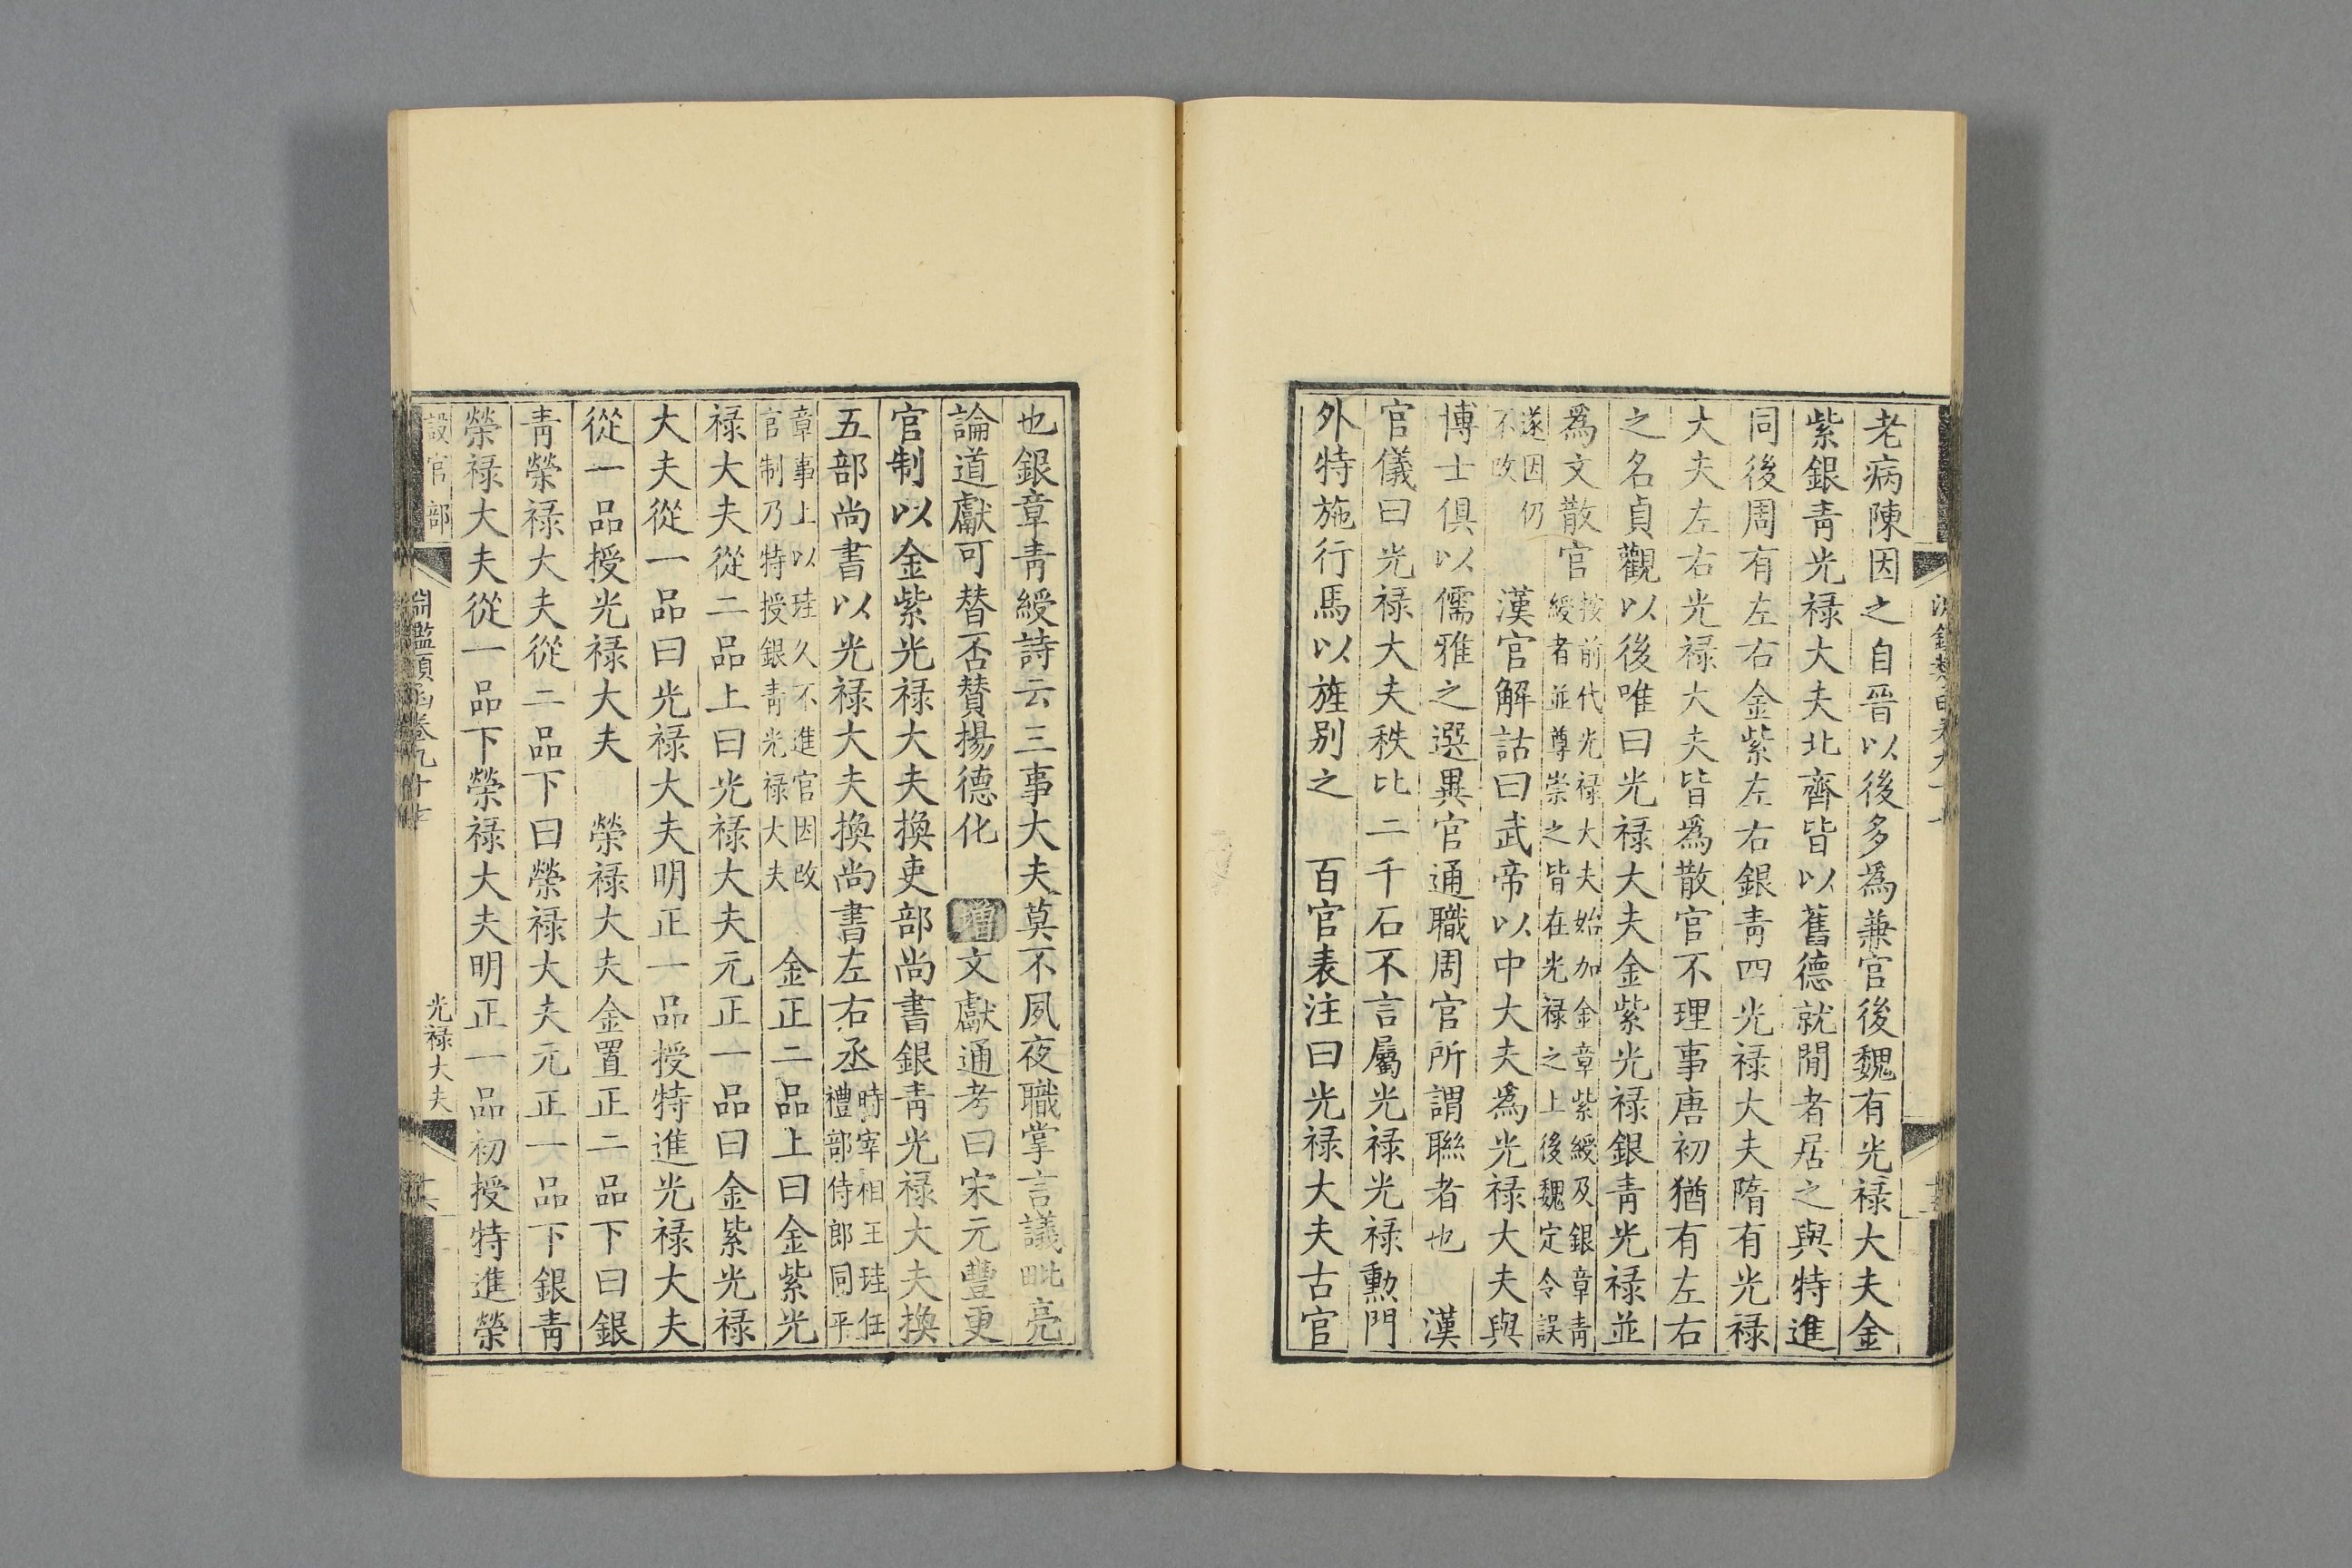 老病陳因之自晉以後多爲兼官後魏有光禄大夫金
紫銀靑光禄大夫北齊皆以舊德就閒者居之與特進
同後周有左右金紫左右銀靑四光禄大夫隋有光禄
大夫左右光禄大夫皆爲散官不理事唐初猶有左右
之名貞觀以後唯曰光禄大夫金紫光禄銀靑光禄並
爲文散官按前代光禄大夫始加金章紫綬及銀章靑
綬者並尊崇之皆在光禄之上後魏定令誤
遂因仍
不改
漢官解詁曰武帝以中大夫爲光禄大夫與
博士俱以儒雅之選異官通職周官所謂聯者也 漢
官儀曰光禄大夫秩比二千石不言屬光禄光禄勲門
外特施行馬以旌別之 百官表注曰光禄大夫古官
也銀章靑綬詩云三事大夫莫不夙夜職掌言議毗亮
論道獻可替否贊揚德化 增文獻通考曰宋元豐更
官制以金紫光禄大夫換吏部尚書銀靑光禄大夫換
五部尚書以光禄大夫換尚書左右丞時宰相王珪任
禮部侍郎同平
章事上以珪久不進官因改
官制乃特授銀靑光禄大夫
金正二品上曰金紫光
禄大夫從二品上曰光禄大夫元正一品曰金紫光禄
大夫從一品曰光禄大夫明正一品授特進光禄大夫
從一品授光禄大夫 榮禄大夫金置正二品下曰銀
靑榮禄大夫從二品下曰榮禄大夫元正一品下銀靑
榮禄大夫從一品下榮禄大夫明正一品初授特進榮
設官部
淵鑑類函卷九十
光禄大夫